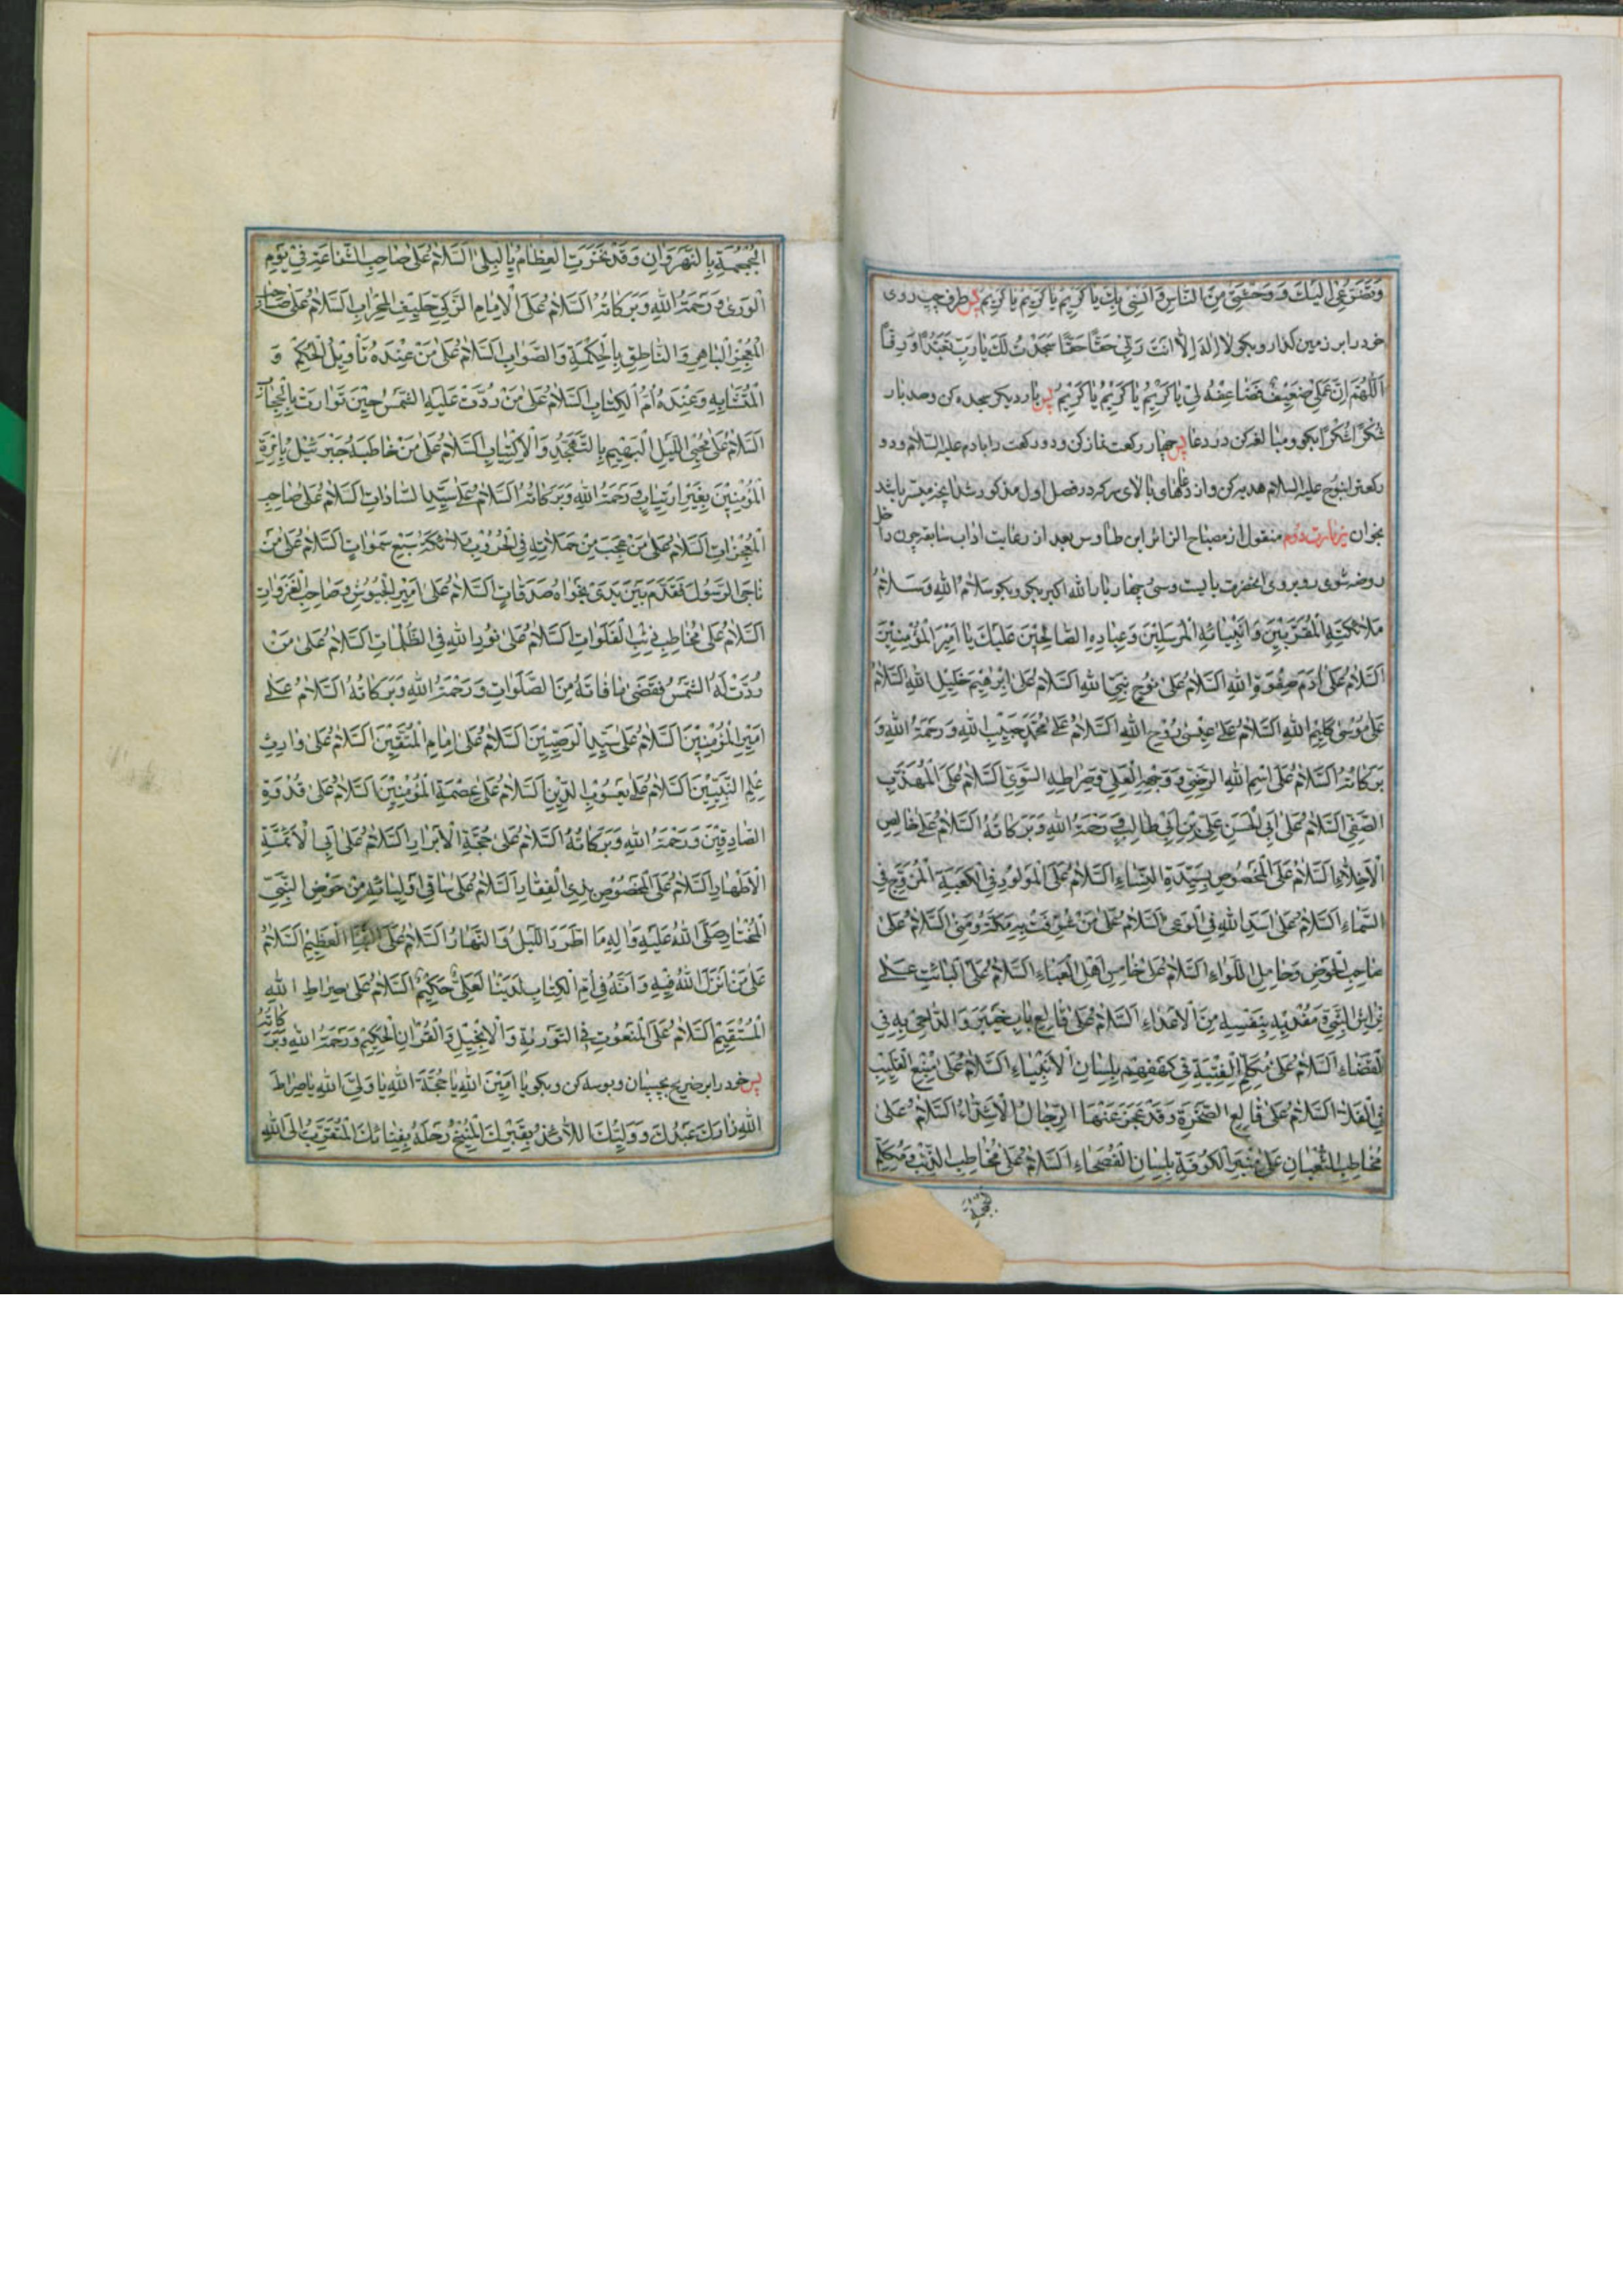 وَتَضَرُّعِي اِلَيْكَ وَ وَحْشَتِي مِنَ النّاسِ وَ اُنْسِي بِكَ يا كَرِيمُ يا كَرِيمُ يا كَرِيمُ پس طرف چپ روی
خود را بر زمین گذار و بگو لا اِلٰهَ اِلّا اَنْتَ رَبّي حَقًّا حَقًّا سَجَدْتُ لَكَ يا رَبِّ تَعَبُّدًا وَ رِقًّا
اَللّٰهُمَّ اِنَّ عَمَلي ضَعِيفٌ فَضاعِفْهُ لي يا كَرِيمُ يا كَرِيمُ يا كَرِيمُ پس بار دیگر سجده کن و صد بار
شُكْرًا شُكْرًا بگو و مبالغه کن در دعا پس چهار رکعت نماز کن و دو رکعت را بادم علیه السلام و دو
رکعترا بنوح علیه السلام هدیه کن و از دعاهای بالای سر که در فصل اول مذکور شد آنچه میسر باشد
بخوان زیارت دوم منقول از مصباح الزائر ابن طاوس بعد از رعایت اداب سابقه چون داخل
روضه شوی روبروی انحضرت بایست و سی و چهار بار الله اکبر بگو و بگو سَلامُ اللهِ وَ سَلامُ
مَلائِكَتِهِ الْمُقَرَّبِينَ وَ اَنْبِيائِهِ الْمُرْسَلِينَ وَ عِبادِهِ الصّالِحِينَ عَلَيْكَ يا اَمِيرَ الْمُؤْمِنِينَ
اَلسَّلامُ عَلى آدَمَ صِفْوَةِ اللهِ اَلسَّلامُ عَلى نُوحٍ نَبِيِّ اللهِ اَلسَّلامُ عَلى اِبْرٰهِيمَ خَلِيلِ اللهِ اَلسَّلامُ
عَلى مُوسٰى كَلِيمِ اللهِ اَلسَّلامُ عَلى عِيسٰى رُوحِ اللهِ اَلسَّلامُ عَلى مُحَمَّدٍ حَبِيبِ اللهِ وَ رَحْمَةُ اللهِ وَ
بَرَكاتُهُ اَلسَّلامُ عَلَى اسْمِ اللهِ الرَّضِيِّ وَ وَجْهِهِ الْعَلِيِّ وَ صِراطِهِ السَّوِيِّ اَلسَّلامُ عَلَى الْمُهَذَّبِ
الصَّفِيِّ اَلسَّلامُ عَلى اَبِي الْحَسَنِ عَلِيِّ بْنِ اَبي طالِبٍ وَ رَحْمَةُ اللهِ وَ بَرَكاتُهُ اَلسَّلامُ عَلى خالِصِ
الْاَخِلّاءِ اَلسَّلامُ عَلَى الْمَخْصُوصِ بِسَيِّدَةِ النِّساءِ اَلسَّلامُ عَلَى الْمَوْلُودِ فِي الْكَعْبَةِ الْمُزَوَّجِ فِي
السَّماءِ اَلسَّلامُ عَلى اَسَدِ اللهِ فِي الْوَغى اَلسَّلامُ عَلى مَنْ شُرِّفَتْ بِهِ مَكَّةُ وَ مِنٰى اَلسَّلامُ عَلى
صاحِبِ الْحَوْضِ وَ حامِلِ اللِّواءِ اَلسَّلامُ عَلى خامِسِ اَهْلِ الْعَباءِ اَلسَّلامُ عَلَى الْبائِتِ عَلى
فِراشِ النَّبِيِّ وَ مَفْدِيهِ بِنَفْسِهِ مِنَ الْاَعْداءِ اَلسَّلامُ عَلى قالِعِ بابِ خَيْبَرَ وَ الدّاحِي بِهِ فِي
الْفَضاءِ اَلسَّلامُ عَلى مُكَلِّمِ الْفِتْيَةِ في كَهْفِهِمْ بِلِسانِ الْاَنْبِياءِ اَلسَّلامُ عَلى مُنْبِعِ الْقَلِيبِ
فِي الْفَلا اَلسَّلامُ عَلى قالِعِ الصَّخْرَةِ وَ قَدْ عَجَزَ عَنْهَا الرِّجالُ الْاَشِدّاءُ اَلسَّلامُ عَلى
مُخاطِبِ الثُّعْبانِ عَلى مِنْبَرِ الْكُوفَةِ بِلِسانِ الْفُصَحاءِ اَلسَّلامُ عَلى مُخاطِبِ الذِّئْبِ وَ مُكَلِّمِ
الجمجمة
الْجُمْجُمَةِ بِالنَّهْرَوانِ وَ قَدْ نَخِرَتِ الْعِظامُ بِالْبِلٰى اَلسَّلامُ عَلى صاحِبِ الشَّفاعَةِ في يَوْمِ
الْوَرٰى وَ رَحْمَةُ اللهِ وَ بَرَكاتُهُ اَلسَّلامُ عَلَى الْاِمامِ الزَّكِيِّ حَلِيفِ الْمِحْرابِ اَلسَّلامُ عَلى صاحِبِ
الْمُعْجِزِ الْباهِرِ وَ النّاطِقِ بِالْحِكْمَةِ وَ الصَّوابِ اَلسَّلامُ عَلى مَنْ عِنْدَهُ تَأْوِيلُ الْمُحْكَمِ وَ
الْمُتَشابِهِ وَ عِنْدَهُ اُمُّ الْكِتابِ اَلسَّلامُ عَلى مَنْ رُدَّتْ عَلَيْهِ الشَّمْسُ حِينَ تَوارَتْ بِالْحِجابِ
اَلسَّلامُ عَلى مُحْيِي اللَّيْلِ الْبَهِيمِ بِالتَّهَجُّدِ وَ الْاِكْتِيابِ اَلسَّلامُ عَلى مَنْ خاطَبَهُ جَبْرَئِيلُ بِاِمْرَةِ
الْمُؤْمِنِينَ بِغَيْرِ ارْتِيابٍ وَ رَحْمَةُ اللهِ وَ بَرَكاتُهُ اَلسَّلامُ عَلى سَيِّدِ السّاداتِ اَلسَّلامُ عَلى صاحِبِ
الْمُعْجِزاتِ اَلسَّلامُ عَلى مَنْ عَجِبَ مِنْ حَمَلاتِهِ فِي الْحُرُوبِ مَلائِكَةُ سَبْعِ سَمٰواتٍ اَلسَّلامُ عَلى مَنْ
ناجَى الرَّسُولَ فَقَدَّمَ بَيْنَ يَدَيْ نَجْواهُ صَدَقاتٍ اَلسَّلامُ عَلى اَمِيرِ الْجُيُوشِ وَ صاحِبِ الْغَزَواتِ
اَلسَّلامُ عَلى مُخاطِبِ ذِئْبِ الْفَلَواتِ اَلسَّلامُ عَلى نُورِ اللهِ فِي الظُّلُماتِ اَلسَّلامُ عَلى مَنْ
رُدَّتْ لَهُ الشَّمْسُ فَقَضٰى ما فاتَهُ مِنَ الصَّلَواتِ وَ رَحْمَةُ اللهِ وَ بَرَكاتُهُ اَلسَّلامُ عَلى
اَمِيرِ الْمُؤْمِنِينَ اَلسَّلامُ عَلى سَيِّدِ الْوَصِيِّينَ اَلسَّلامُ عَلى اِمامِ الْمُتَّقِينَ اَلسَّلامُ عَلى وارِثِ
عِلْمِ النَّبِيِّينَ اَلسَّلامُ عَلى يَعْسُوبِ الدِّينِ اَلسَّلامُ عَلى عِصْمَةِ الْمُؤْمِنِينَ اَلسَّلامُ عَلى قُدْوَةِ
الصّادِقِينَ وَ رَحْمَةُ اللهِ وَ بَرَكاتُهُ اَلسَّلامُ عَلى حُجَّةِ الْاَبْرارِ اَلسَّلامُ عَلى اَبِي الْاَئِمَّةِ
الْاَطْهارِ اَلسَّلامُ عَلَى الْمَخْصُوصِ بِذِي الْفِقارِ اَلسَّلامُ عَلى ساقي اَوْلِيائِهِ مِنْ حَوْضِ النَّبِيِّ
الْمُخْتارِ صَلَّى اللهُ عَلَيْهِ وَ آلِهِ مَا اطَّرَدَ اللَّيْلُ وَ النَّهارُ اَلسَّلامُ عَلَى النَّبَإِ الْعَظِيمِ اَلسَّلامُ
عَلى مَنْ اَنْزَلَ اللهُ فِيهِ وَ اِنَّهُ في اُمِّ الْكِتابِ لَدَيْنا لَعَلِيٌّ حَكِيمٌ اَلسَّلامُ عَلى صِراطِ اللهِ
الْمُسْتَقِيمِ اَلسَّلامُ عَلَى الْمَنْعُوتِ فِي التَّوْرٰيةِ وَ الْاِنْجِيلِ وَ الْقُرْآنِ الْحَكِيمِ وَ رَحْمَةُ اللهِ وَ بَرَكاتُهُ
پس خود را بر ضریح بچسبان و بوسه کن و بگو يا اَمِينَ اللهِ يا حُجَّةَ اللهِ يا وَلِيَّ اللهِ يا صِراطَ
اللهِ زارَكَ عَبْدُكَ وَ وَلِيُّكَ اللّائِذُ بِقَبْرِكَ الْمُنِيخُ رَحْلَهُ بِفِنائِكَ الْمُتَقَرِّبُ اِلَى اللهِ